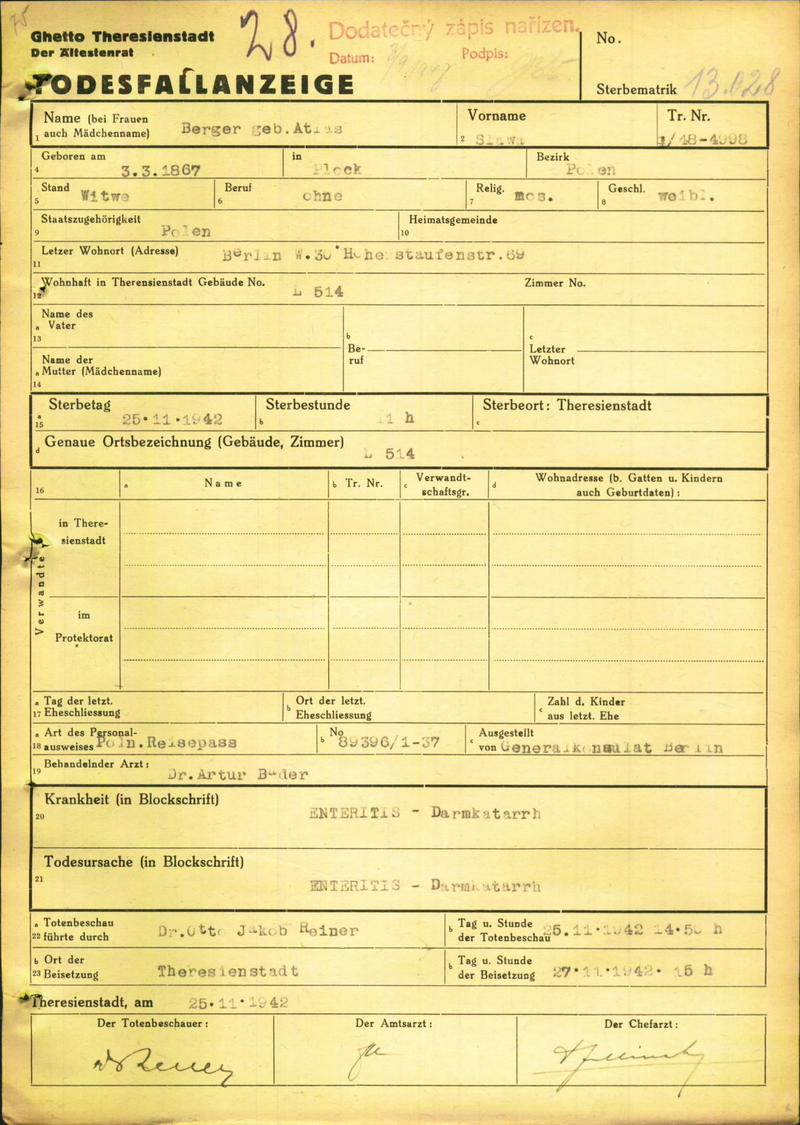 75
Ghetto Theresienstadt
Der Ältestenrat
28.
Dodatečný zápis nařízen.
Datum:
Podpis:
No.
TODESFALLANZEIGE
Sterbematrik 13.028
Name (bei Frauen
1 auch Mädchenname) Berger geb.Atias
Vorname
2
Tr. Nr.
Geboren am
4 3.3.1867
in
Plock
Bezirk
Polen
Stand
5 Witwe
Beruf
6 ohne
Relig.
7 mos.
Geschl.
8 weibl.
Staatszugehörigkeit
9 Polen
Heimatsgemeinde
10
Letzer Wohnort (Adresse) Berlin W.30 Hohenstaufenstr.69
11
Wohnhaft in Therensienstadt Gebäude No. L 514
12
Zimmer No.
Name des
a Vater
13
Name der
a Mutter (Mädchenname)
14
b
Be-
ruf
c
Letzter
Wohnort
Sterbetag
a
15 25.11.1942
Sterbestunde
b h
Sterbeort: Theresienstadt
c
d Genaue Ortsbezeichnung (Gebäude, Zimmer) L 514
16
a Name
b Tr. Nr.
c Verwandt-
schaftsgr.
d Wohnadresse (b. Gatten u. Kindern
auch Geburtdaten):
Verwandte
in There-
sienstadt
im
Protektorat
a Tag der letzt.
17 Eheschliessung
b Ort der letzt.
Eheschliessung
c Zahl d. Kinder
aus letzt. Ehe
a Art des Personal-
18 ausweises Poln.Reisepass
b No 89396/1-37
c Ausgestellt
von Generalkonsulat Berlin
19 Behandelnder Arzt:
Dr.Artur Bader
Krankheit (in Blockschrift)
20 ENTERITIS - Darmkatarrh
Todesursache (in Blockschrift)
21 ENTERITIS - Darmkatarrh
a Totenbeschau
22 führte durch Dr.Otto Jakob Reiner
b Tag u. Stunde
der Totenbeschau 25.11.1942 14.50 h
b Ort der
23 Beisetzung Theresienstadt
b Tag u. Stunde
der Beisetzung 27.11.1942. 15 h
Theresienstadt, am 25.11.1942
Der Totenbeschauer:
Der Amtsarzt:
Der Chefarzt: